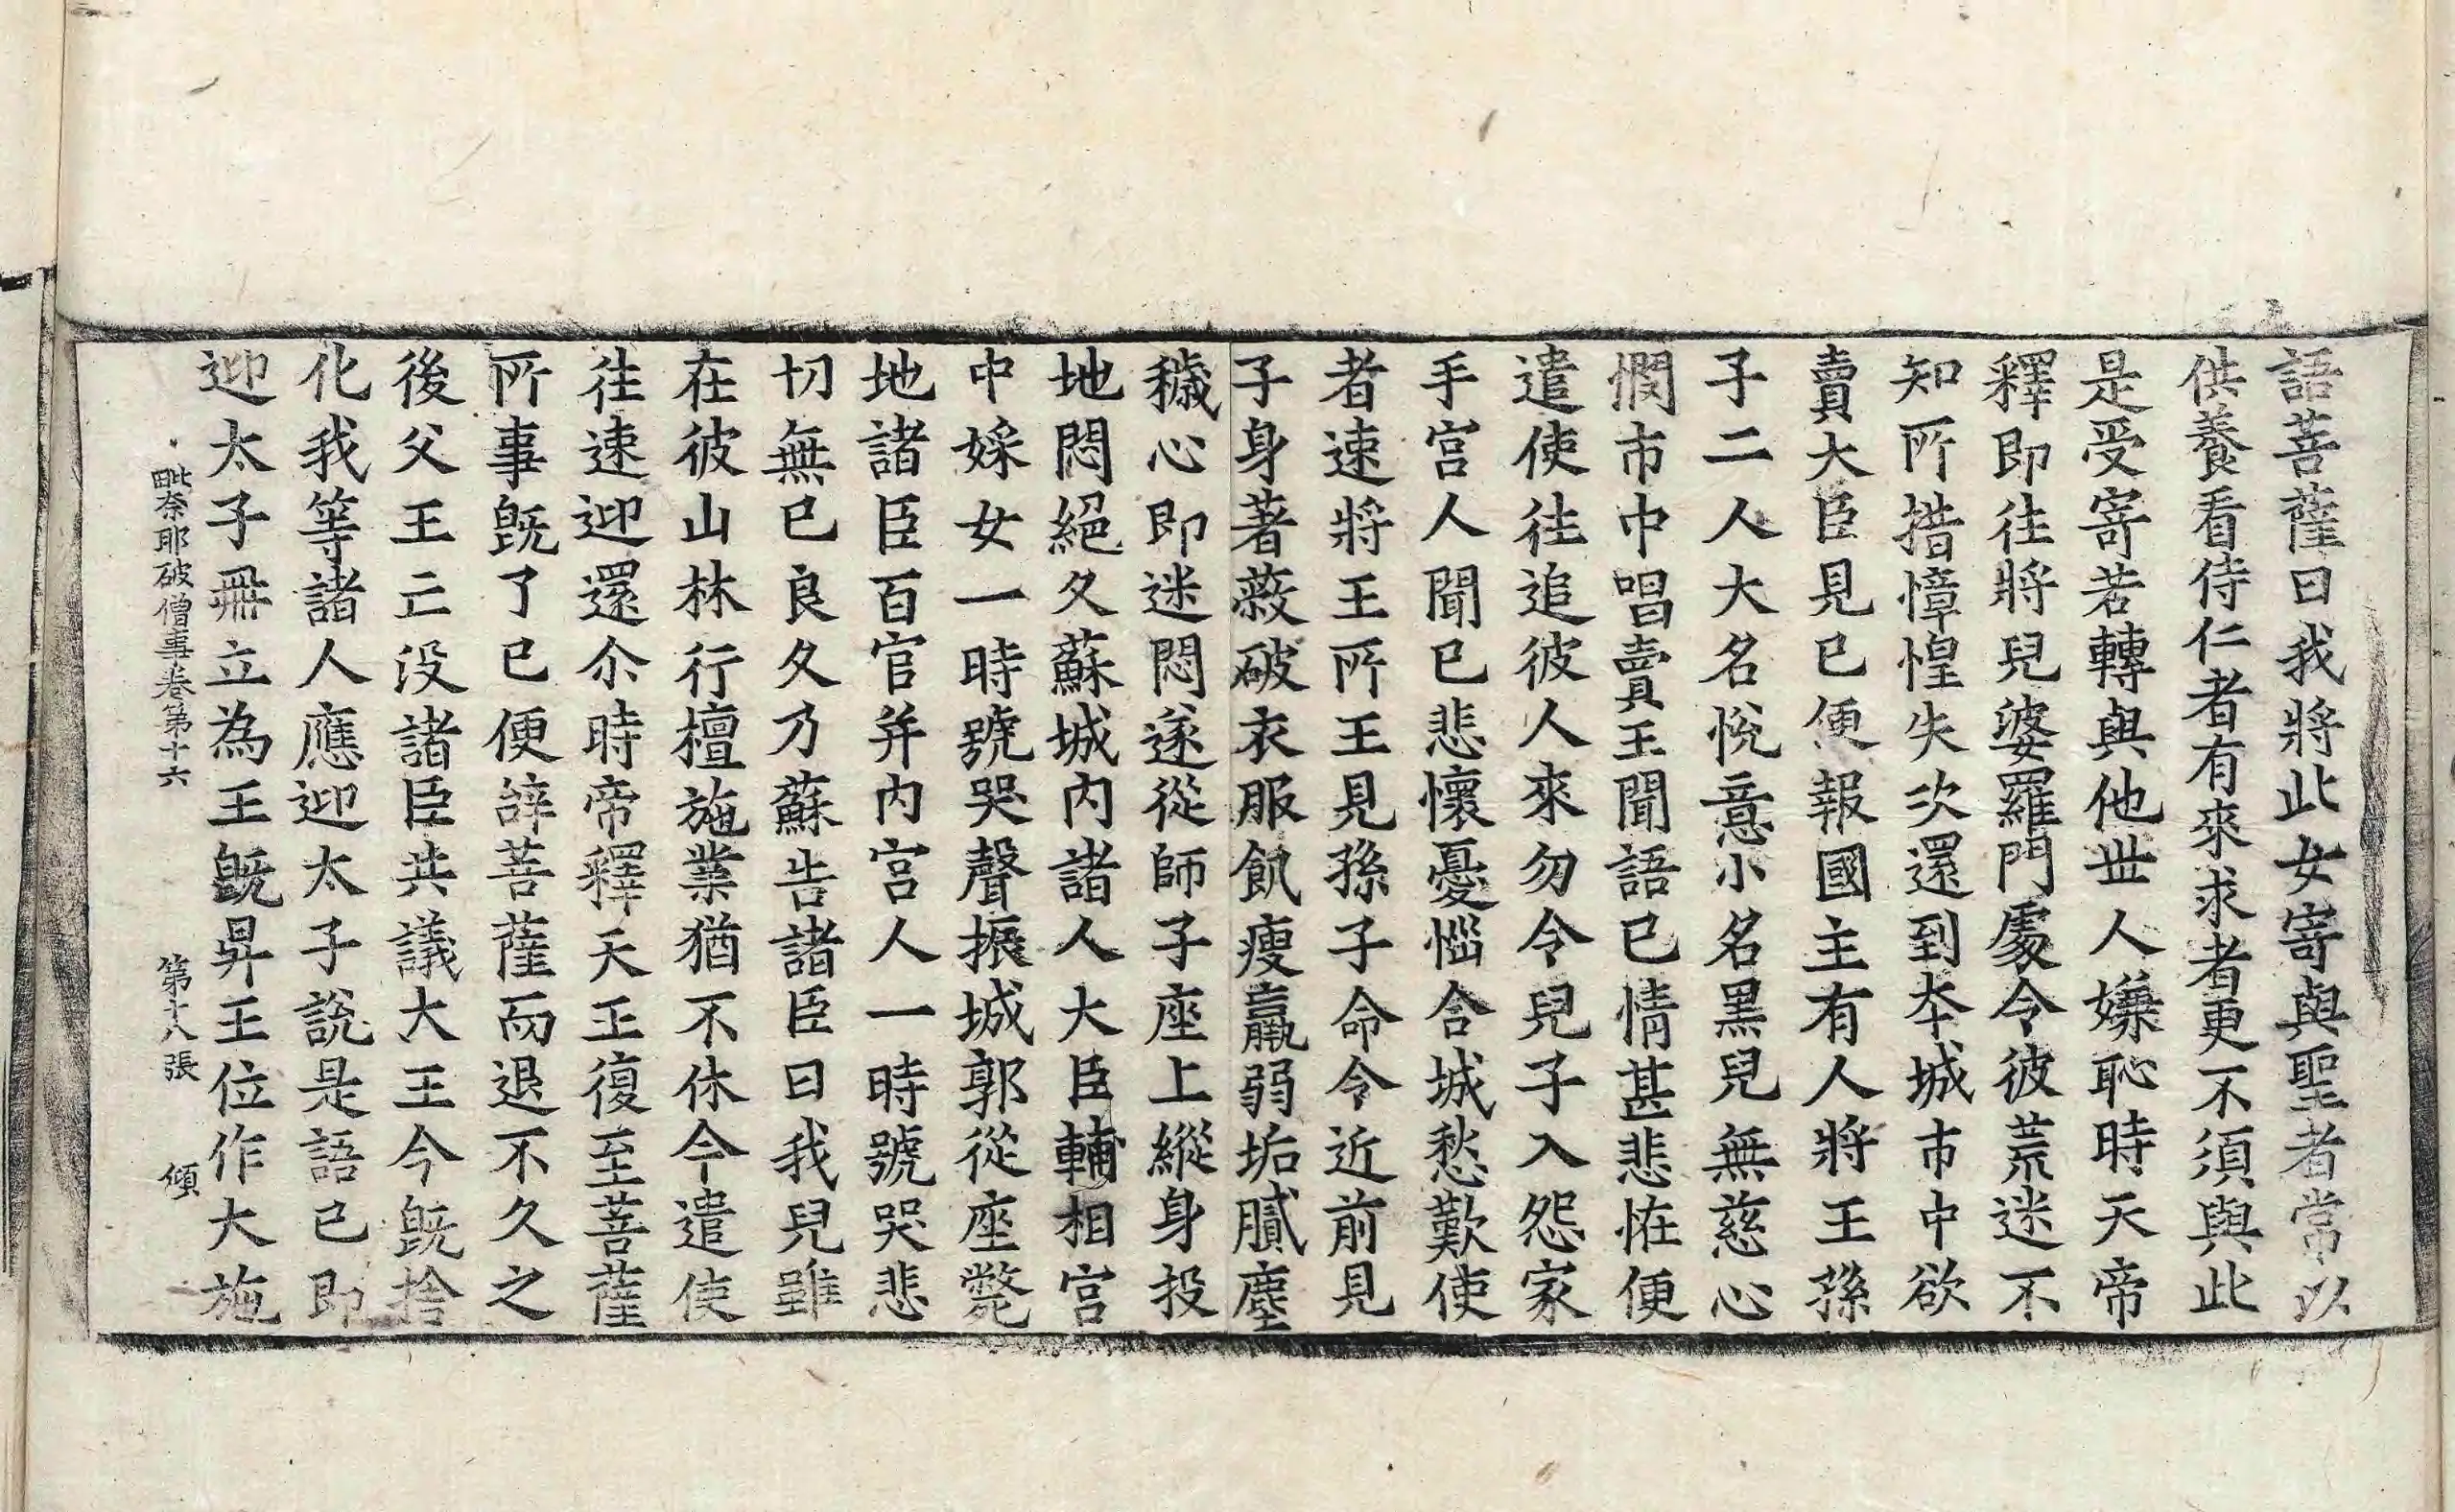 語菩薩曰我將此女寄與聖者常以
供養看侍仁者有來求者更不須與此
是受寄若轉與他世人嫌恥時天帝
釋即往將兒婆羅門處令彼荒迷不
知所措慞惶失次還到本城市中欲
賣大臣見已便報國主有人將王孫
子二人大名悅意小名黑兒無慈心
憫市中唱賣王聞語已情甚悲恠便
遣使往追彼人來勿令兒子入怨家
手宮人聞已悲懷憂惱合城愁歎使
者速將王所王見孫子命令近前見
子身著蔽破衣服飢瘦羸弱垢膩塵
穢心即迷悶遂從師子座上縱身投
地悶絕久蘇城內諸人大臣輔相宮
中婇女一時號哭聲振城郭從座斃
地諸臣百官并內宮人一時號哭悲
切無已良久乃蘇告諸臣曰我兒雖
在彼山林行檀施業猶不休今遣使
往速迎還尒時帝釋天王復至菩薩
所事旣了已便辝菩薩而退不久之
後父王亡沒諸臣共議大王今旣捨
化我等諸人應迎太子說是語已即
迎太子冊立為王旣昇王位作大施
毗奈耶破僧事卷第十六　第十八張　傾